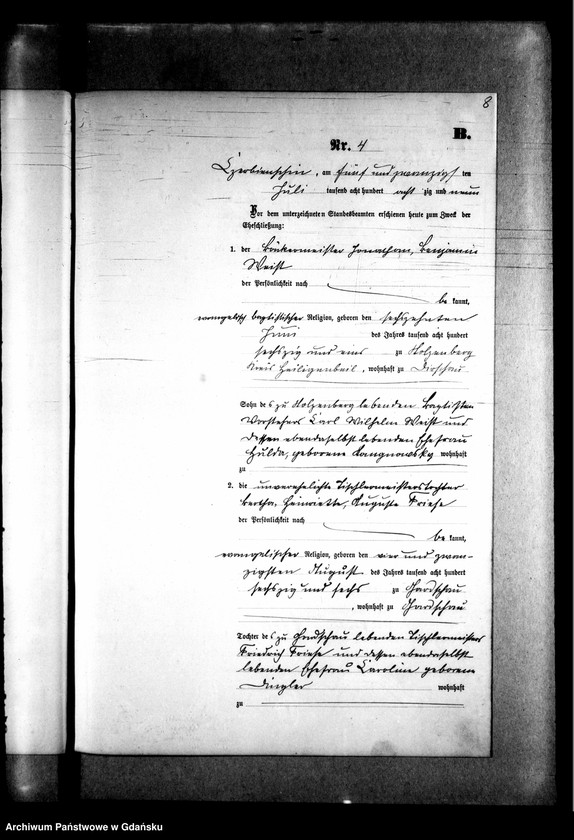 8
B.
Nr. 4
Czerbienschin, am fünf und zwanzigsten
Juli tausend acht hundert acht zig und neun
Vor dem unterzeichneten Standesbeamten erschienen heute zum Zweck der
Eheschließung:
1. der Bäckermeister Jonathan, Benjamin
Weist
der Persönlichkeit nach
be kannt,
evangelisch baptistischer Religion, geboren den sechszehnten
Juni des Jahres tausend acht hundert
sechszig und eins zu Holzenberg
Kreis Heiligenbeil, wohnhaft zu Dirschau
Sohn des zu Holzenberg lebenden Baptisten
Vorstehers Carl Wilhelm Weist und
dessen ebendaselbst lebenden Ehefrau
Hulda, geborene wohnhaft
zu
2. die unverehelichte Tischlermeisterstochter
Bertha, Henriette, Auguste Friese
der Persönlichkeit nach
be kannt,
evangelischer Religion, geboren den vier und zwan-
zigsten August des Jahres tausend acht hundert
sechszig und sechs zu Gardschau
, wohnhaft zu Gardschau
Tochter des zu Gardschau lebenden Tischlermeisters
Friedrich Friese und dessen ebendaselbst
lebenden Ehefrau Caroline geborene
wohnhaft
zu
Archiwum Państwowe w Gdańsku